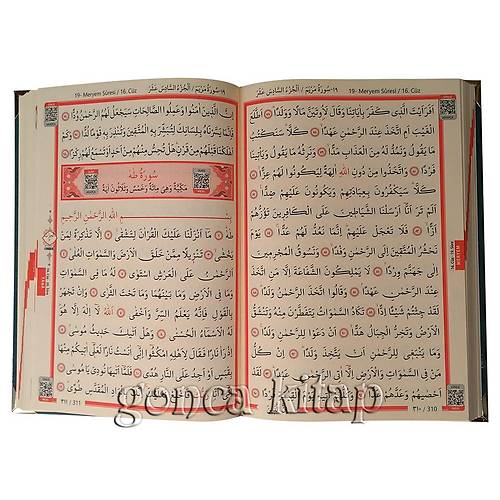 19- Meryem Sûresi / 16. Cüz
١٩-سُورَةُ مَرْيَمَ / اَلْجُزْءُ السَّادِسَ عَشَرَ
اَفَرَاَيْتَ الَّذِي كَفَرَ بِاٰيَاتِنَا وَقَالَ لَاُوتَيَنَّ مَالًا وَوَلَدًا اَطَّلَعَ
الْغَيْبَ اَمِ اتَّخَذَ عِنْدَ الرَّحْمٰنِ عَهْدًا كَلَّا سَنَكْتُبُ
مَا يَقُولُ وَنَمُدُّ لَهُ مِنَ الْعَذَابِ مَدًّا وَنَرِثُهُ مَا يَقُولُ وَيَأْتِينَا
فَرْدًا وَاتَّخَذُوا مِنْ دُونِ اللّٰهِ اٰلِهَةً لِيَكُونُوا لَهُمْ عِزًّا
كَلَّا سَيَكْفُرُونَ بِعِبَادَتِهِمْ وَيَكُونُونَ عَلَيْهِمْ ضِدًّا
اَلَمْ تَرَ اَنَّا اَرْسَلْنَا الشَّيَاطِينَ عَلَى الْكَافِرِينَ تَؤُزُّهُمْ
اَزًّا فَلَا تَعْجَلْ عَلَيْهِمْ اِنَّمَا نَعُدُّ لَهُمْ عَدًّا يَوْمَ
نَحْشُرُ الْمُتَّقِينَ اِلَى الرَّحْمٰنِ وَفْدًا وَنَسُوقُ الْمُجْرِمِينَ
اِلٰى جَهَنَّمَ وِرْدًا لَا يَمْلِكُونَ الشَّفَاعَةَ اِلَّا مَنِ اتَّخَذَ
عِنْدَ الرَّحْمٰنِ عَهْدًا وَقَالُوا اتَّخَذَ الرَّحْمٰنُ وَلَدًا
لَقَدْ جِئْتُمْ شَيْئًا اِدًّا تَكَادُ السَّمٰوَاتُ يَتَفَطَّرْنَ مِنْهُ وَتَنْشَقُّ
الْاَرْضُ وَتَخِرُّ الْجِبَالُ هَدًّا اَنْ دَعَوْا لِلرَّحْمٰنِ وَلَدًا
وَمَا يَنْبَغِي لِلرَّحْمٰنِ اَنْ يَتَّخِذَ وَلَدًا اِنْ كُلُّ
مَنْ فِي السَّمٰوَاتِ وَالْاَرْضِ اِلَّا اٰتِي الرَّحْمٰنِ عَبْدًا لَقَدْ
اَحْصٰيهُمْ وَعَدَّهُمْ
٣١٠ / 310
MERYEM
19- Meryem Sûresi / 16. Cüz
١٩-سُورَةُ مَرْيَمَ / اَلْجُزْءُ السَّادِسَ عَشَرَ
اِنَّ الَّذِينَ اٰمَنُوا وَعَمِلُوا الصَّالِحَاتِ سَيَجْعَلُ لَهُمُ الرَّحْمٰنُ وُدًّا
فَاِنَّمَا يَسَّرْنَاهُ بِلِسَانِكَ لِتُبَشِّرَ بِهِ الْمُتَّقِينَ وَتُنْذِرَ بِهِ قَوْمًا لُدًّا وَكَمْ
اَهْلَكْنَا قَبْلَهُمْ مِنْ قَرْنٍ هَلْ تُحِسُّ مِنْهُمْ مِنْ اَحَدٍ اَوْ تَسْمَعُ لَهُمْ رِكْزًا
سُورَةُ طٰهٰ
مَكِّيَّةٌ وَهِيَ مِائَةٌ وَخَمْسٌ وَثَلَاثُونَ اٰيَةً
بِسْمِ اللّٰهِ الرَّحْمٰنِ الرَّحِيمِ
طٰهٰ مَا اَنْزَلْنَا عَلَيْكَ الْقُرْاٰنَ لِتَشْقٰى اِلَّا تَذْكِرَةً لِمَنْ
يَخْشٰى تَنْزِيلًا مِمَّنْ خَلَقَ الْاَرْضَ وَالسَّمٰوَاتِ الْعُلٰى
اَلرَّحْمٰنُ عَلَى الْعَرْشِ اسْتَوٰى لَهُ مَا فِي السَّمٰوَاتِ
وَمَا فِي الْاَرْضِ وَمَا بَيْنَهُمَا وَمَا تَحْتَ الثَّرٰى وَاِنْ تَجْهَرْ
بِالْقَوْلِ فَاِنَّهُ يَعْلَمُ السِّرَّ وَاَخْفٰى اَللّٰهُ لَا اِلٰهَ اِلَّا هُوَ
لَهُ الْاَسْمَاءُ الْحُسْنٰى وَهَلْ اَتٰيكَ حَدِيثُ مُوسٰى
اِذْ رَاٰ نَارًا فَقَالَ لِاَهْلِهِ امْكُثُوا اِنِّي اٰنَسْتُ نَارًا لَعَلِّي اٰتِيكُمْ مِنْهَا
بِقَبَسٍ اَوْ اَجِدُ عَلَى النَّارِ هُدًى فَلَمَّا اَتٰيهَا نُودِيَ يَا مُوسٰى
بِالْوَادِ الْمُقَدَّسِ طُوًى
٣١١ / 311
gonca kitap